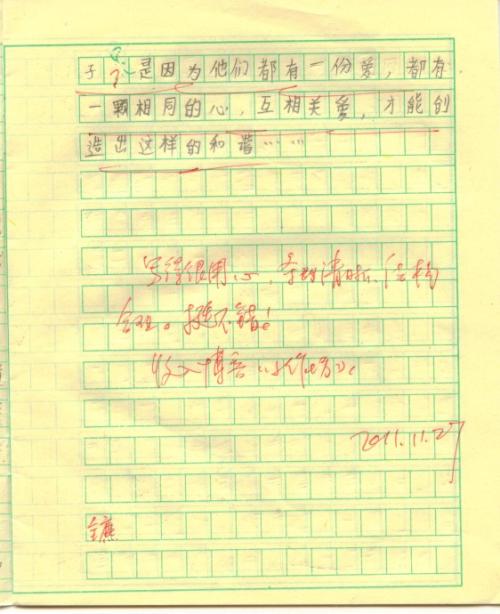 于是因为他们都有一份爱，都有
一颗相同的心，互相关爱，才能创
造出这样的和谐……
写得很用心，条理清晰、结构
合理。挺不错！
收入博客
2011.11.27